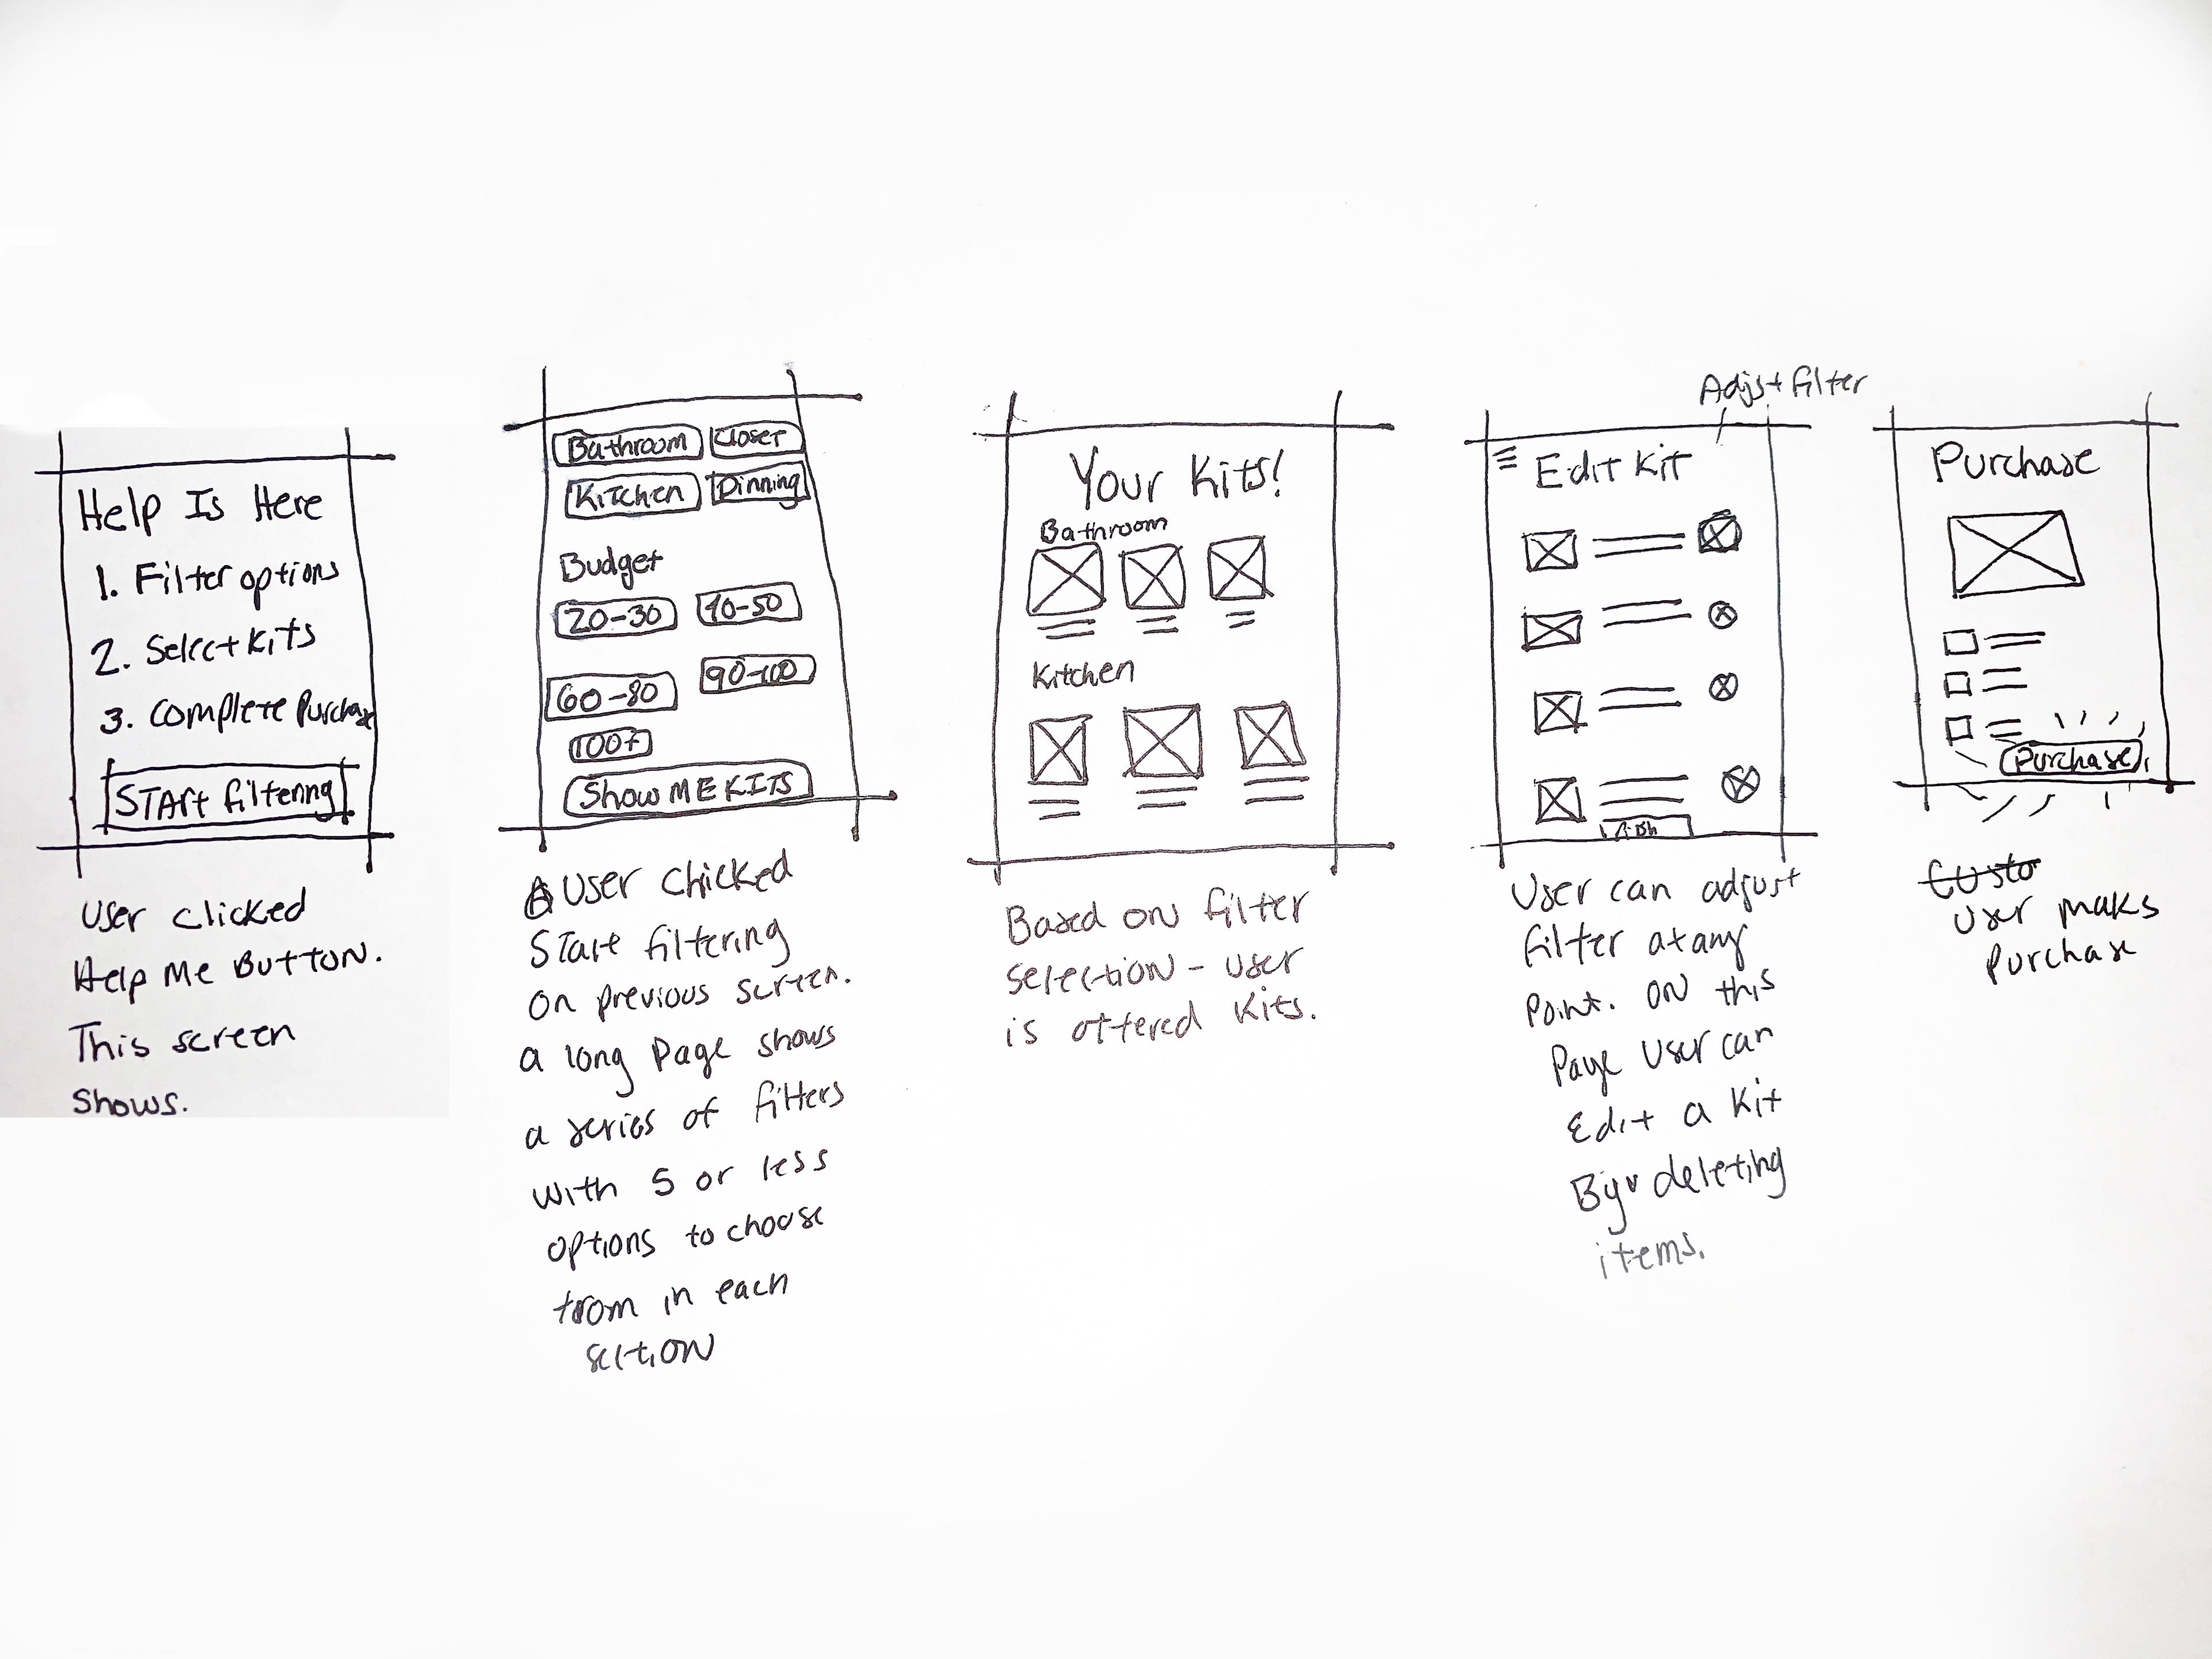 Help Is Here
1. Filter options
2. Select Kits
3. Complete Purchase
START filtering
User clicked
Help Me Button.
This screen
shows.
Bathroom Closet
Kitchen Dinning
Budget
20-30 40-50
60-80 90-100
100+
Show ME KITS
A User Chicked
Start filtering
on previous screen.
a long page shows
a series of filters
with 5 or less
options to choose
from in each
section
Your Kits!
Bathroom
Kitchen
Based on filter
selection - user
is offered Kits.
Adjst filter
Edit Kit
User can adjust
filter at any
point. On this
Page User can
Edit a Kit
By deleting
items.
Purchase
Purchase
Custo
User maks
Purchase